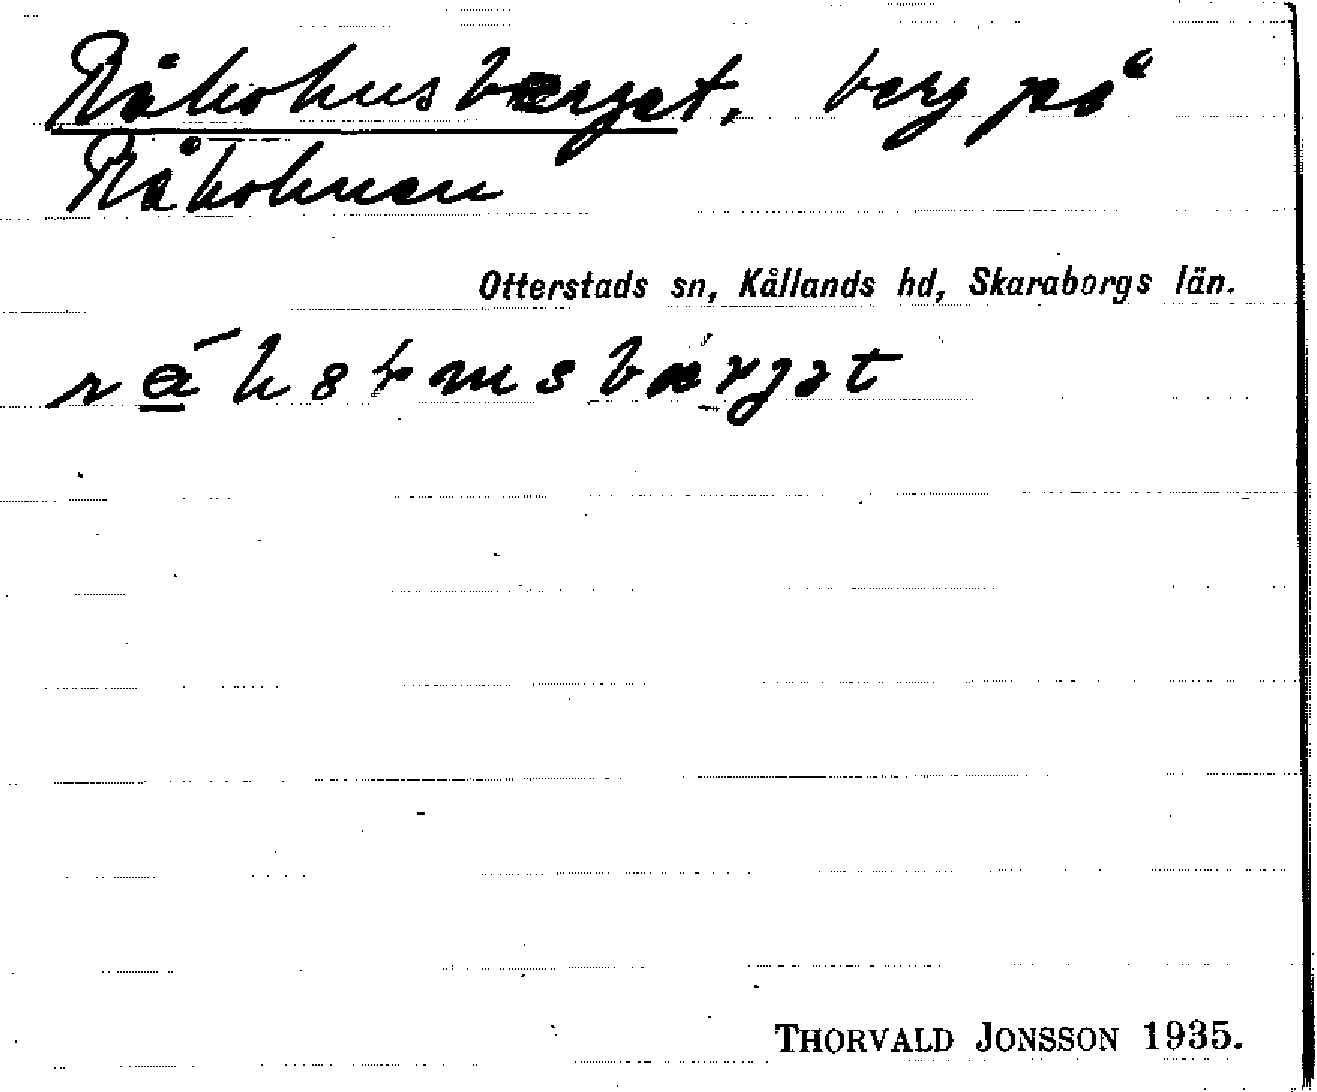 Råholmsberget, berg på
Råholmen
Otterstads sn, Kållands hd, Skaraborgs län.
THORVALD JONSSON 1935.